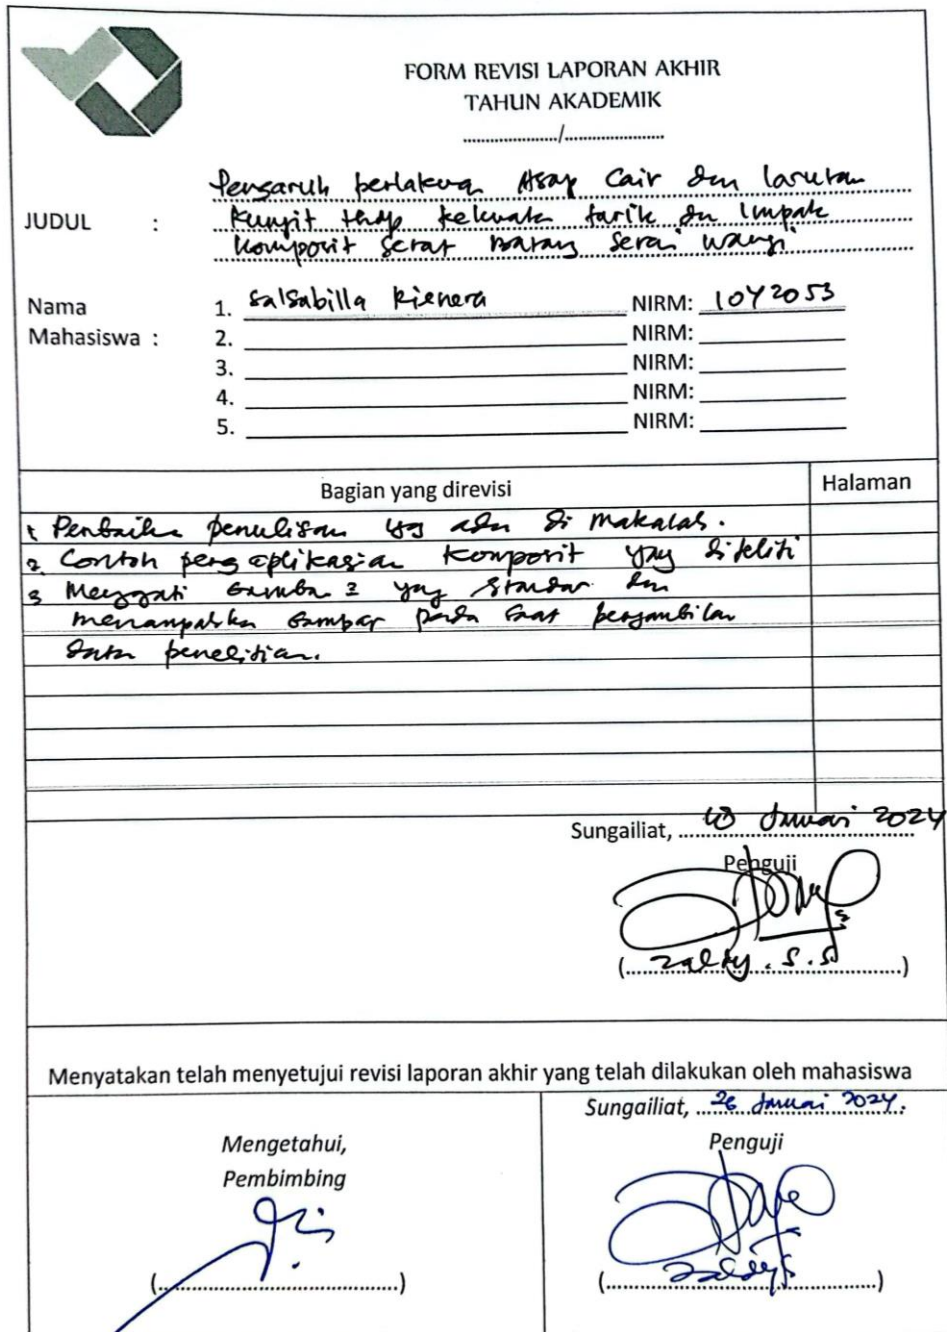 FORM REVISI LAPORAN AKHIR
TAHUN AKADEMIK
...................../......................
JUDUL :
Pengaruh perlakuan Asap Cair dan larutan
Kunyit thdp kekuatan tarik dan Impak
Komposit Serat Batang Serai wangi
Nama
Mahasiswa :
1. Salsabilla Rienera NIRM: 1042053
2. NIRM:
3. NIRM:
4. NIRM:
5. NIRM:
Bagian yang direvisi Halaman
1 Perbaikan penulisan yg ada di Makalah.
2. Contoh pengaplikasian Komposit yang diteliti
3 Mengganti Gambar 2 yang Standar dan
menampakkan Gambar pada saat pengambilan
data penelitian.
Sungailiat, Januari 2024
Penguji
(Zaldy . S . S)
Menyatakan telah menyetujui revisi laporan akhir yang telah dilakukan oleh mahasiswa
Mengetahui,
Pembimbing
(........................................)
Sungailiat, 26 Januari 2024.
Penguji
(Zaldy S)